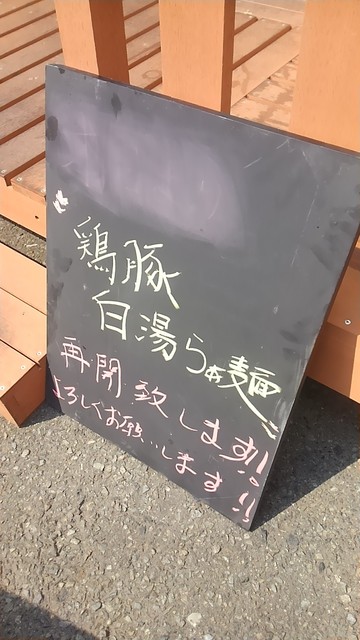 〝鶏豚
白湯らぁ麺〟
再開致します!!
よろしくお願いします!!